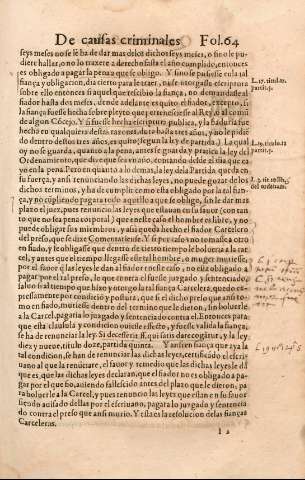 De causas criminales. Fol.64
seys meses no se le ha de dar mas de los dichos seys meses, o si no le pu-
diere hallar, o no lo traxere a derecho hasta el año cumplido, entonces
es obligado a pagar la pena a que se obligo. Y si no se pusiesse en la tal
fiança y obligacion, dia cierto para le traer,
sobre ello entonces si aquel que rescibio la fiança, no demandasse el
fiador hasta dos meses, dende adelante es quito el fiador, excepto, si
la fiança fuesse hecha sobre pleyto que pertenesciesse al Rey, o al comu
de algun Cõcejo. Y si fuesse hecha por escriptura publica, y la
hecha en qualquiera destas razones, dura hasta tres años, y no le pidiẽ
do dentro destos tres años, es quito, segun la ley de partida. La qual
oy no se guarda, quanto a la pena, antes se guarda y pratica la ley del
Ordenamiento, que dize que sea vn año, contando desde el dia que ca-
yo en la pena. Pero en quanto a lo demas, la ley de la Partida queda en
su fuerça, y ansi renunciando las dichas leyes, no puede gozar de los
dichos terminos, y ha de cumplir como esta obligado por la tal fian-
ça, y no cũpliendo pagara todo aquello a que se obligo, sin le dar mas
plazo el juez, pues renuncio las leyes que estauan en su fauor (con tan
to que no sea pena corporal) que en este caso el hombre es libre, y no
puede obligar sus miembros, y assi queda hecho el fiador Carcelero
del preso, que se dize Comentariense. Y si por caso vno tomasse a otro
en fiado, y le obligasse que dentro de cierto tiempo le bolueria a la car-
cel, y antes que el tiempo llegasse este tal hombre, o muger muriesse,
por el fauor que las leyes le dan al fiador en este caso, no esta obligado a
pagar por el tal preso, lo que contra el fuesse juzgado y sentenciado
saluo si al tiempo que hizo y otorgo la tal fiança Carcelera, quedo ex-
pressamente por condicion y postura, que si el dicho preso que assi to-
mo en fiado, muriesse dentro del termino que le dieron, de boluerle
a la Carcel, pagaria lo juzgado y sentenciado contra el. Entonces para
que esta clausula y condicion ouiesse effecto, y fuesse valida la fiança,
se ha de renunciar la ley. Si decesserit. ff. qui satis dare cogãtur, y la ley
diez y nueue, titulo doze, partida quinta. Y ansi en fiança que aya la
tal condicion, se han de renunciar las dichas leyes, certificado el escri-
uano al que la renũciare, el fauor y remedio que las dichas leyes le dan
que es, que las dichas leyes declaran, que el fiador no es obligado a pa-
gar por el que fio, auiendo fallescido antes del plazo que le dieron, pa
ra boluerle a la Carcel, y pues renuncio las leyes que estan en su fauor
siendo auisado dellas por el escriuano, pagara lo juzgado y sentencia
do contra el preso que ansi murio. Y esta es la resolucion de las fianças
Carceleras.
L. 17. titul.12.
partit.5.
titulo.12
partit.5.
del ordenam.